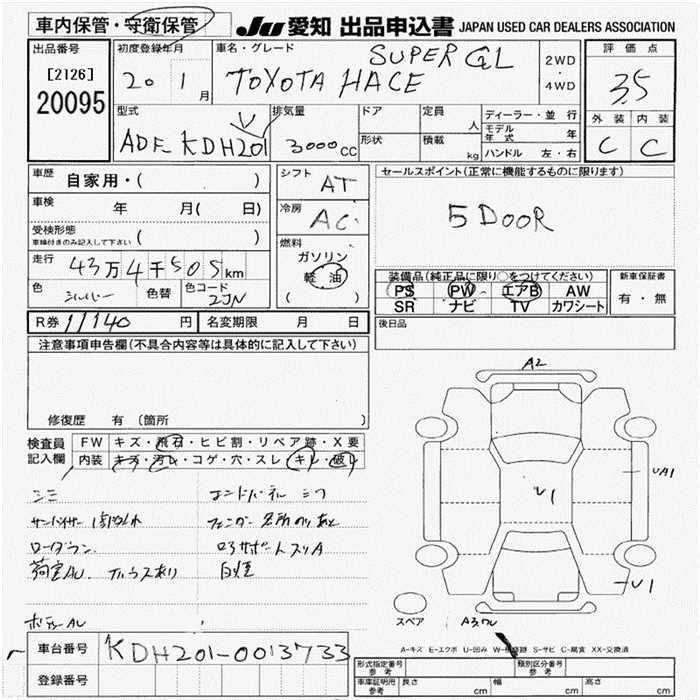 車内保管・守衛保管
JU 愛知 出品申込書 JAPAN USED CAR DEALERS ASSOCIATION
出品番号
[2126]
20095
初度登録年月
20 1 月
車名・グレード
SUPER GL
TOYOTA HACE
2WD
・
4WD
評価点
3.5
外装 内装
C C
型式
ADF KDH201V
排気量
3000 CC
ドア
形状
定員
人
積載
kg
ディーラー・並行
モデル年式 年
ハンドル 左・右
車歴 自家用・( )
車検 年 月( 日)
受検形態
車検付きのみ記入して下さい ( )
走行 43万4千505km
色 シルバー 色替 色コード 2JN
シフト
AT
冷房
AC
燃料
ガソリン
軽油
( )
セールスポイント(正常に機能するものに限ります)
5 DOOR
装備品(純正品に限り○をつけてください)
PS PW エアB AW
SR ナビ TV カワシート
新車保証書
有・無
R券 11140 円 名変期限 月 日
後日品
注意事項申告欄(不具合内容等は具体的に記入して下さい)
修復歴 有 (箇所 )
検査員
記入欄
FW キズ・飛石・ヒビ割・リペア跡・X要
内装 キズ・汚レ・コゲ・穴・スレ・キレ・破レ
シミ
ローダウン
A2
U1
UA1
U1
スペア
A-キズ E-エクボ U-凹み W-補修跡 S-サビ C-腐食 XX-交換済
車台番号 KDH201-0013733
登録番号
形式指定番号
参考
類別区分番号
参考
車庫証明用
参考
長さ cm 幅 cm 高さ cm